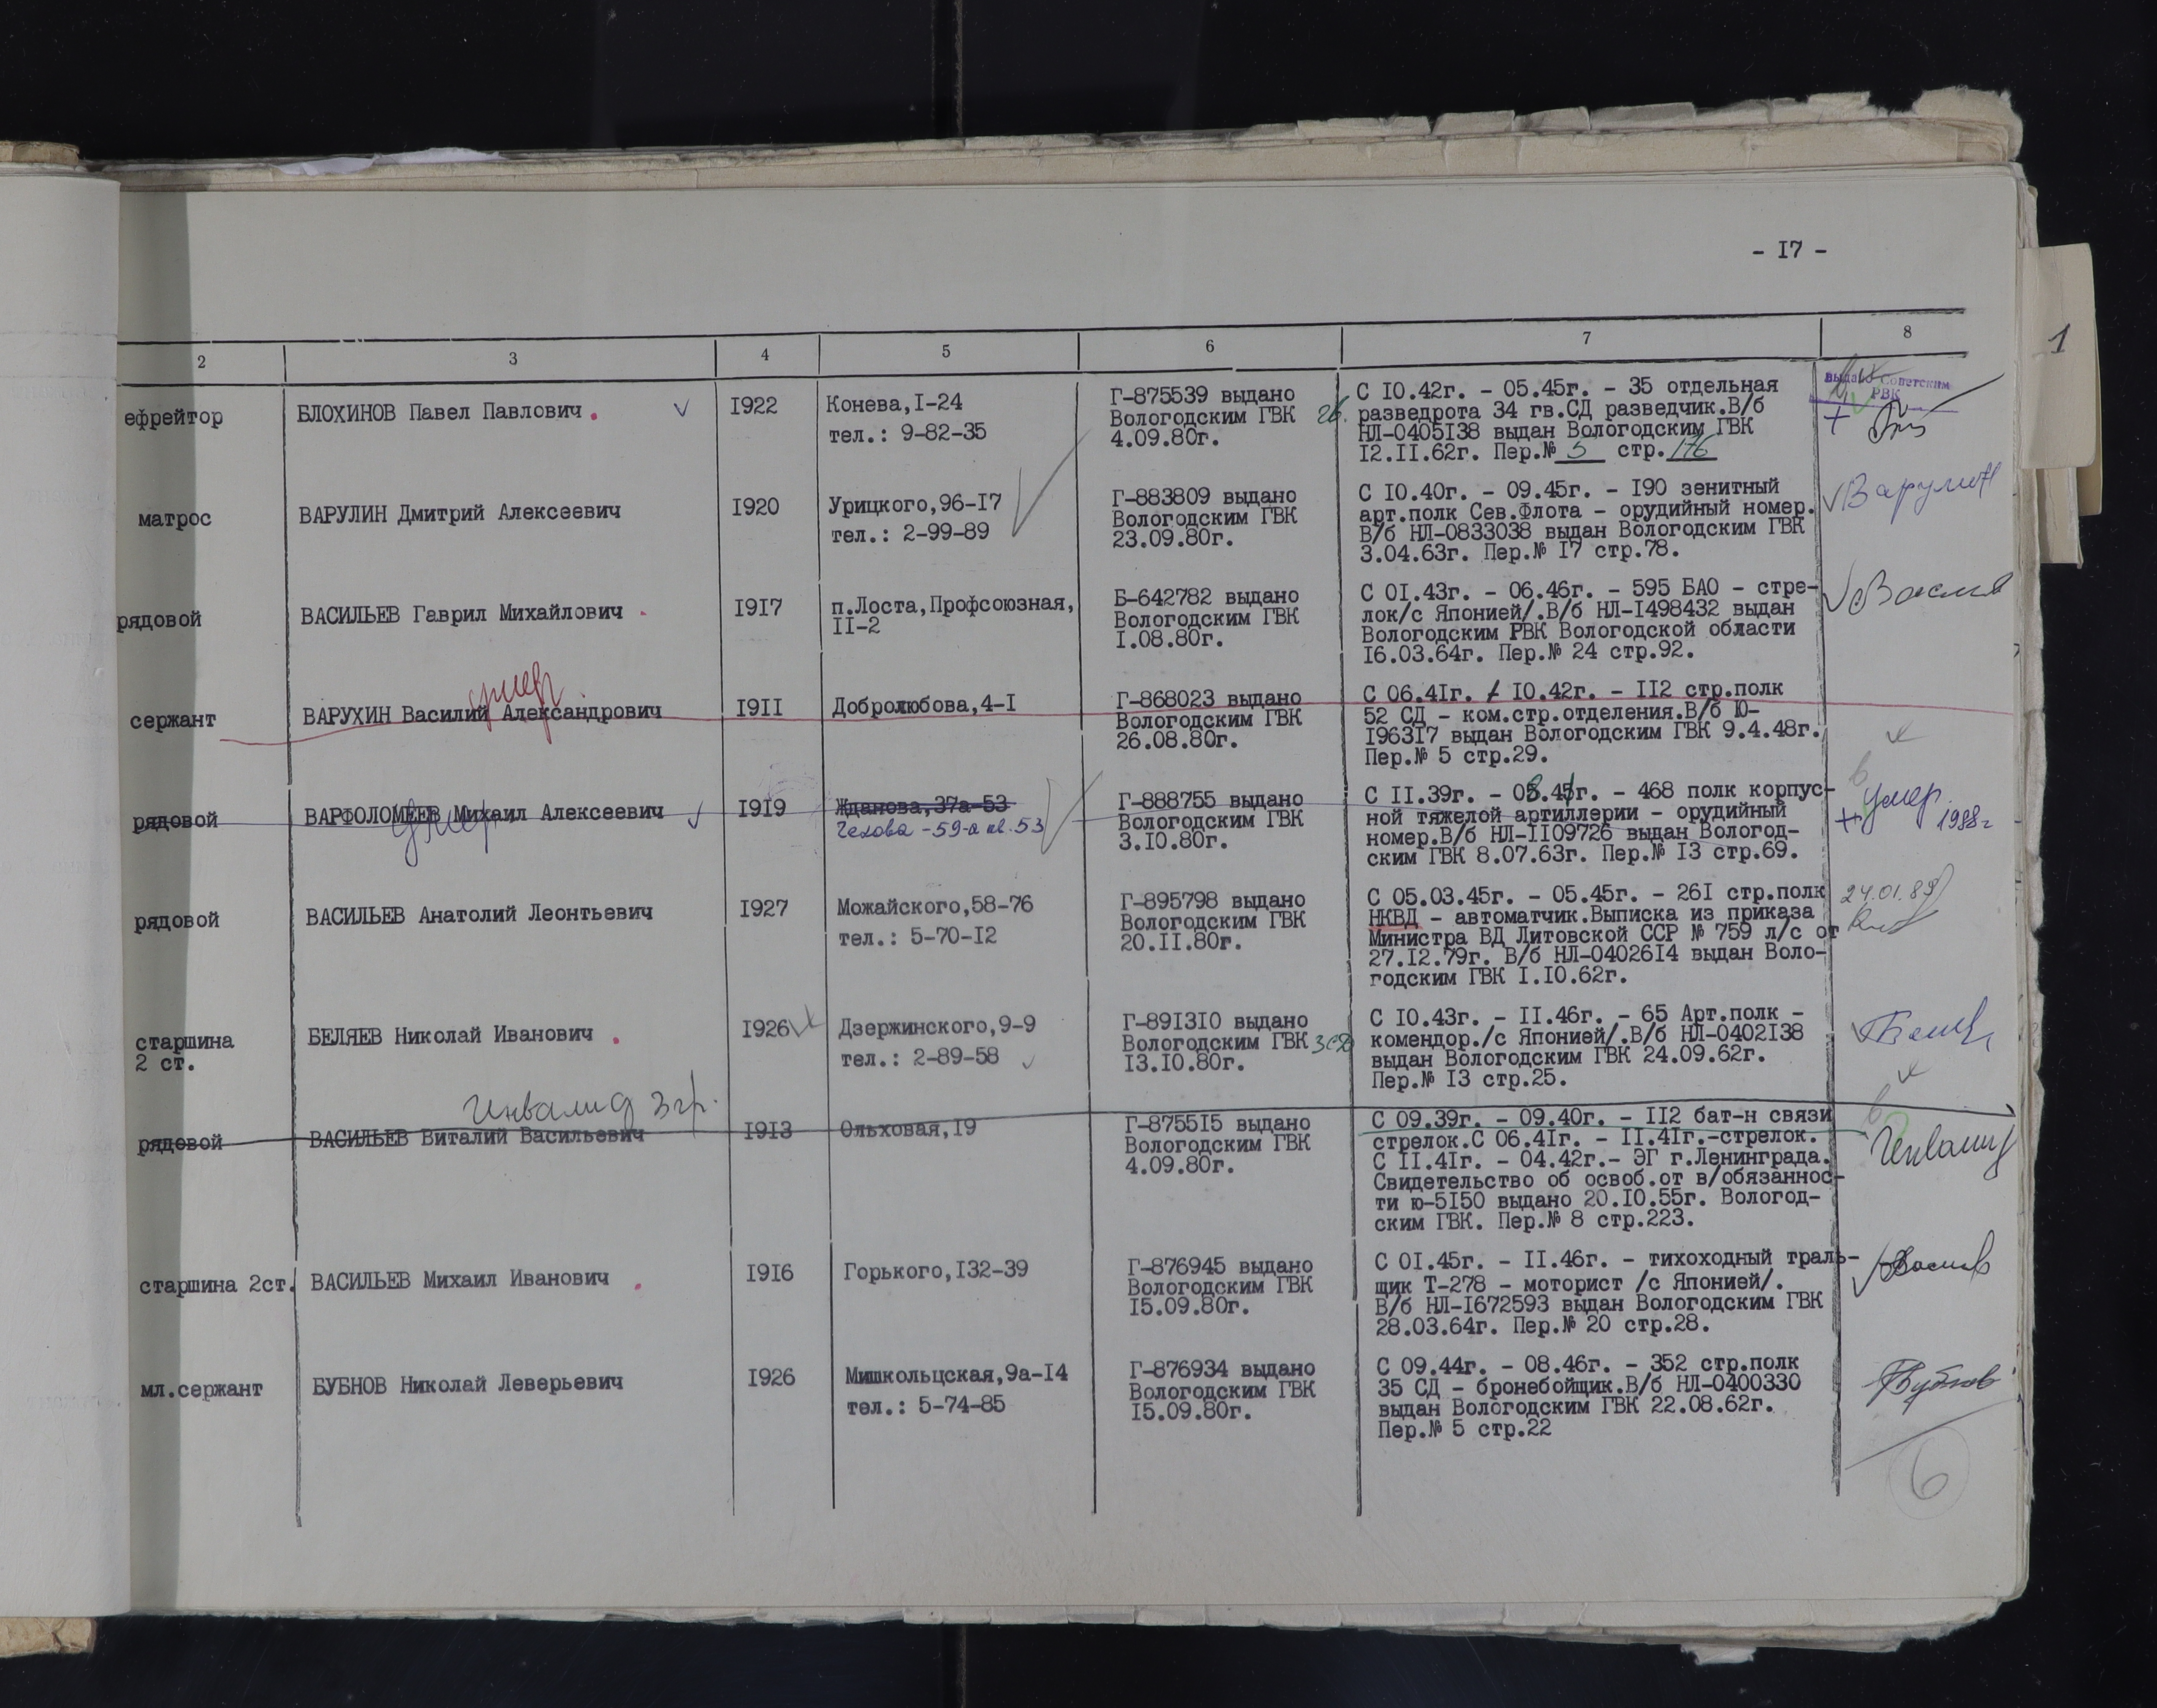 - I7 -
1
2 3 4 5 6 7 8
ефрейтор
БЛОХИНОВ Павел Павлович
I922
Конева,I-24
тел.: 9-82-35
Г-875539 выдано
Вологодским ГВК
4.09.80г.
С I0.42г. - 05.45г. - 35 отдельная
разведрота 34 гв.СД разведчик.В/б
НЛ-0405I38 выдан Вологодским ГВК
I2.II.62г. Пер.№ 5 стр. 176
выдано Советским
РВК
матрос
ВАРУЛИН Дмитрий Алексеевич
I920
Урицкого,96-I7
тел.: 2-99-89
Г-883809 выдано
Вологодским ГВК
23.09.80г.
С I0.40г. - 09.45г. - I90 зенитный
арт.полк Сев.Флота - орудийный номер.
В/б НЛ-0833038 выдан Вологодским ГВК
3.04.63г. Пер.№ I7 стр.78.
Варулин
рядовой
ВАСИЛЬЕВ Гаврил Михайлович
I9I7
п.Лоста,Профсоюзная,
II-2
Б-642782 выдано
Вологодским ГВК
I.08.80г.
С 0I.43г. - 06.46г. - 595 БАО - стре-
лок/с Японией/.В/б НЛ-I498432 выдан
Вологодским РВК Вологодской области
I6.03.64г. Пер.№ 24 стр.92.
умер
сержант
ВАРУХИН Василий Александрович
I9II
Добролюбова,4-I
Г-868023 выдано
Вологодским ГВК
26.08.80г.
С 06.4Iг. - I0.42г. - II2 стр.полк
52 СД - ком.стр.отделения.В/б Ю-
I963I7 выдан Вологодским ГВК 9.4.48г.
Пер.№ 5 стр.29.
рядовой
ВАРФОЛОМЕЕВ Михаил Алексеевич
умер
I9I9
Жданова,37а-53
Чехова -59-а кв.53
Г-888755 выдано
Вологодским ГВК
3.I0.80г.
С II.39г. - 08.45г. - 468 полк корпус-
ной тяжелой артиллерии - орудийный
номер.В/б НЛ-II09726 выдан Вологод-
ским ГВК 8.07.63г. Пер.№ I3 стр.69.
умер
1988г
рядовой
ВАСИЛЬЕВ Анатолий Леонтьевич
I927
Можайского,58-76
тел.: 5-70-I2
Г-895798 выдано
Вологодским ГВК
20.II.80г.
С 05.03.45г. - 05.45г. - 26I стр.полк
НКВД - автоматчик.Выписка из приказа
Министра ВД Литовской ССР № 759 л/с от
27.I2.79г. В/б НЛ-04026I4 выдан Воло-
годским ГВК I.I0.62г.
24.01.89
старшина
2 ст.
БЕЛЯЕВ Николай Иванович
I926
Дзержинского,9-9
тел.: 2-89-58
Г-89I3I0 выдано
Вологодским ГВК
I3.I0.80г.
С I0.43г. - II.46г. - 65 Арт.полк -
комендор./с Японией/.В/б НЛ-0402I38
выдан Вологодским ГВК 24.09.62г.
Пер.№ I3 стр.25.
Инвалид 3 гр.
рядовой
ВАСИЛЬЕВ Виталий Васильевич
I9I3
Ольховая,I9
Г-8755I5 выдано
Вологодским ГВК
4.09.80г.
С 09.39г. - 09.40г. - II2 бат-н связи
стрелок.С 06.4Iг. - II.4Iг.-стрелок.
С II.4Iг. - 04.42г.- ЭГ г.Ленинграда.
Свидетельство об освоб.от в/обязаннос-
ти ю-5I50 выдано 20.I0.55г. Вологод-
ским ГВК. Пер.№ 8 стр.223.
Инвалид
старшина 2ст.
ВАСИЛЬЕВ Михаил Иванович
I9I6
Горького,I32-39
Г-876945 выдано
Вологодским ГВК
I5.09.80г.
С 0I.45г. - II.46г. - тихоходный траль-
щик Т-278 - моторист /с Японией/.
В/б НЛ-I672593 выдан Вологодским ГВК
28.03.64г. Пер.№ 20 стр.28.
мл.сержант
БУБНОВ Николай Леверьевич
I926
Мишкольцская,9а-I4
тел.: 5-74-85
Г-876934 выдано
Вологодским ГВК
I5.09.80г.
С 09.44г. - 08.46г. - 352 стр.полк
35 СД - бронебойщик.В/б НЛ-0400330
выдан Вологодским ГВК 22.08.62г.
Пер.№ 5 стр.22
Бубнов
6